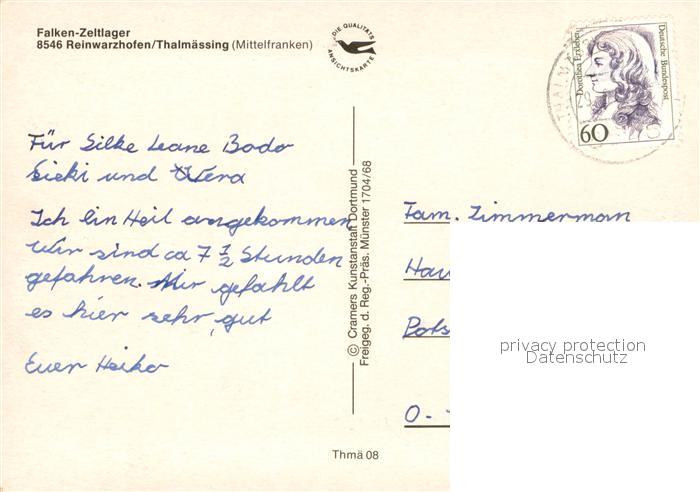 Falken-Zeltlager
8546 Reinwarzhofen/Thalmässing (Mittelfranken)
DIE QUALITÄTS
ANSICHTSKARTE
Dorothea Erxleben
Deutsche Bundespost
60
Für Silke Leane Bodo
Sieki und Wera
Ich bin Heil angekommen
Wir sind ca 7 1/2 Stunden
gefahren. Mir gefahlt
es hier sehr gut
Euer Heiko
© Cramers Kunstanstalt Dortmund
Freigeg. d. Reg.-Präs. Münster 1704/68
Fam. Zimmerman
Hau
Pots
O-
privacy protection
Datenschutz
Thmä 08